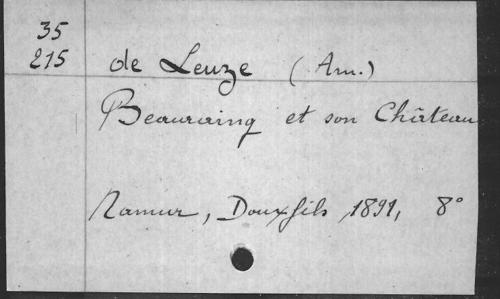 35
215
de Leuze (Am.)
Beauraing et son Château
Namur, Douxfils 1891, 8°